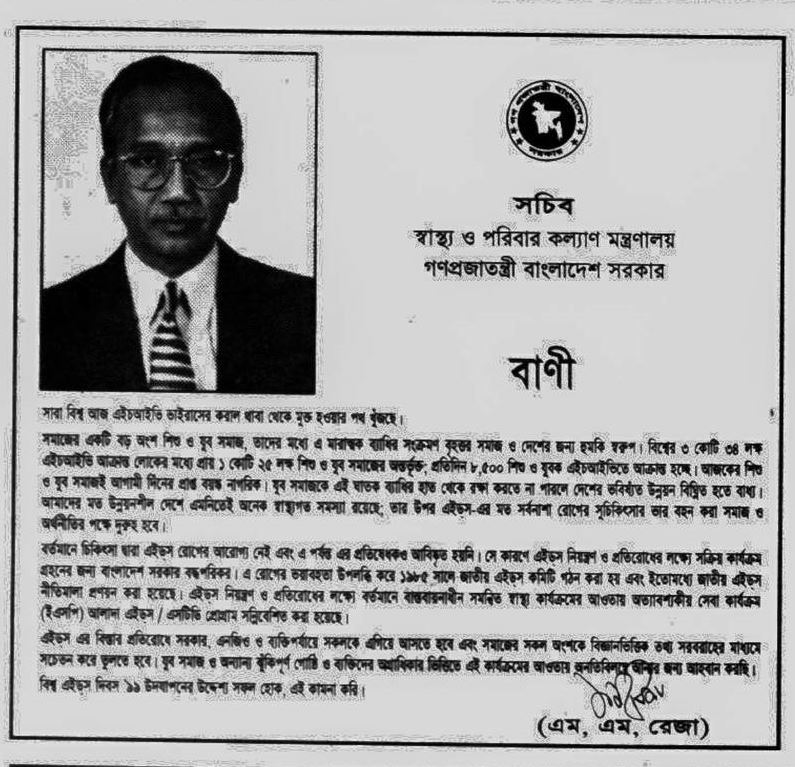 গণ প্রজাতন্ত্রী বাংলাদেশ
সরকার
সচিব
স্বাস্থ্য ও পরিবার কল্যাণ মন্ত্রণালয়
গণপ্রজাতন্ত্রী বাংলাদেশ সরকার
বাণী
সারা বিশ্ব আজ এইচআইভি ভাইরাসের করাল থাবা থেকে মুক্ত হওয়ার পথ খুঁজছে।
সমাজের একটি বড় অংশ শিশু ও যুব সমাজ, তাদের মধ্যে এ মারাত্মক ব্যাধির সংক্রমণ বৃহত্তর সমাজ ও দেশের জন্য হুমকি স্বরূপ। বিশ্বের ৩ কোটি ৩৪ লক্ষ
এইচআইভি আক্রান্ত লোকের মধ্যে প্রায় ১ কোটি ২৫ লক্ষ শিশু ও যুব সমাজের অন্তর্ভুক্ত; প্রতিদিন ৮,৫০০ শিশু ও যুবক এইচআইভিতে আক্রান্ত হচ্ছে। আজকের শিশু
ও যুব সমাজই আগামী দিনের প্রাপ্ত বয়স্ক নাগরিক। যুব সমাজকে এই ঘাতক ব্যাধির হাত থেকে রক্ষা করতে না পারলে দেশের ভবিষ্যত উন্নয়ন বিঘ্নিত হতে বাধ্য।
আমাদের মত উন্নয়নশীল দেশে এমনিতেই অনেক স্বাস্থ্যগত সমস্যা রয়েছে; তার উপর এইডস-এর মত সর্বনাশা রোগের সুচিকিৎসার ভার বহন করা সমাজ ও
অর্থনীতির পক্ষে দুরূহ হবে।
বর্তমানে চিকিৎসা দ্বারা এইডস রোগের আরোগ্য নেই এবং এ পর্যন্ত এর প্রতিষেধকও আবিষ্কৃত হয়নি। সে কারণে এইডস নিয়ন্ত্রণ ও প্রতিরোধের লক্ষ্যে সক্রিয় কার্যক্রম
গ্রহনের জন্য বাংলাদেশ সরকার বদ্ধপরিকর। এ রোগের ভয়াবহতা উপলব্ধি করে ১৯৮৫ সালে জাতীয় এইডস কমিটি গঠন করা হয় এবং ইতোমধ্যে জাতীয় এইডস
নীতিমালা প্রণয়ন করা হয়েছে। এইডস নিয়ন্ত্রণ ও প্রতিরোধের লক্ষ্যে বর্তমানে বাস্তবায়নাধীন সমন্বিত স্বাস্থ্য কার্যক্রমের আওতায় অত্যাবশ্যকীয় সেবা কার্যক্রম
(ইএসপি) আলাদা এইডস / এসটিডি প্রোগ্রাম সন্নিবেশিত করা হয়েছে।
এইডস এর বিস্তার প্রতিরোধে সরকার, এনজিও ও ব্যক্তিপর্যায়ে সকলকে এগিয়ে আসতে হবে এবং সমাজের সকল অংশকে বিজ্ঞানভিত্তিক তথ্য সরবরাহের মাধ্যমে
সচেতন করে তুলতে হবে। যুব সমাজ ও অন্যান্য ঝুঁকিপূর্ণ গোষ্ঠি ও ব্যক্তিদের অগ্রাধিকার ভিত্তিতে এই কার্যক্রমের আওতায় অনতিবিলম্বে আনার জন্য আহবান করছি।
বিশ্ব এইডস দিবস '৯৯ উদযাপনের উদ্দেশ্য সফল হোক, এই কামনা করি।
(এম, এম, রেজা)